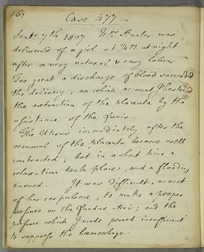 161
Case 477
Septr. 7th 1807 Mrs. Hunter was
delivered of a girl at ¼ 12 at night
after a very natural & easy labor.
Too great a discharge of blood succeeded
the delivery, on which account I hastened
the extraction of the placenta by the
assistance of the funis.
The Uterus immediately after the
removal of the placenta became well
contracted, but in a short time a
relaxation took place, and a flooding
ensued. It was difficult, on acct
of her corpulence, to make a proper
pressure on the fundus uteri; and the
pressure which I made, proved insufficient
to suppress the hæmorrhage.